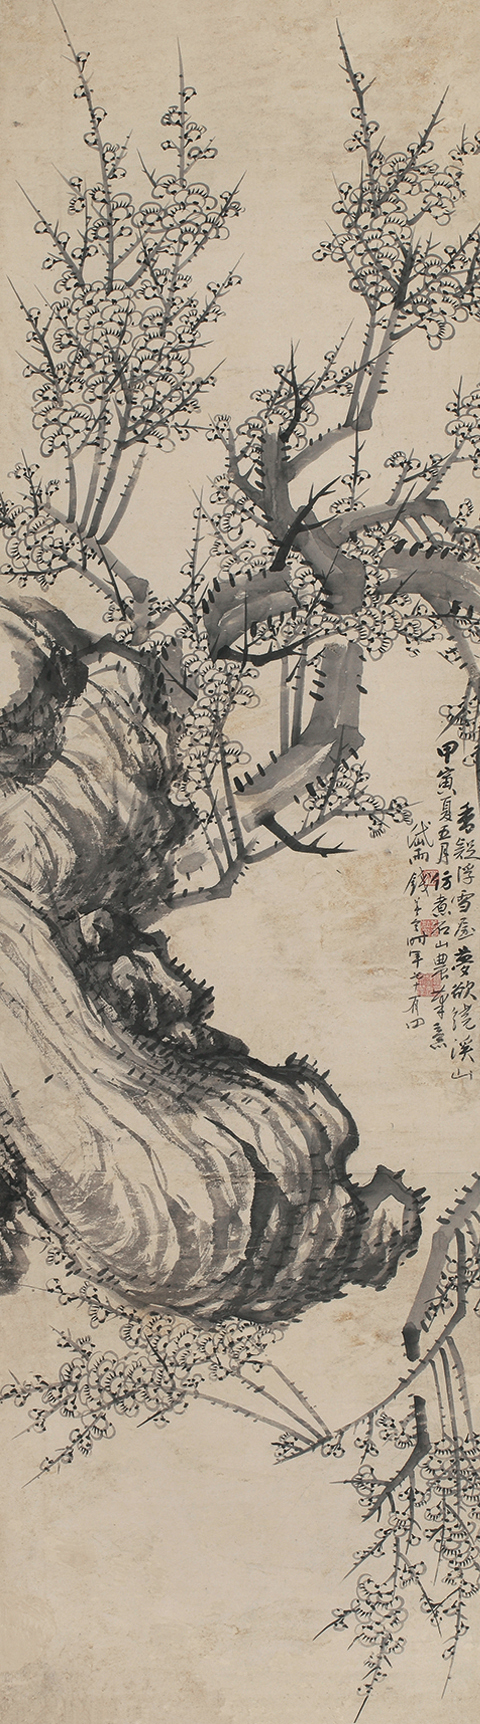 香疑浮雪屋夢欲繞溪山
甲寅夏五月仿煮石山農筆意
岱雨錢 時年七十有四